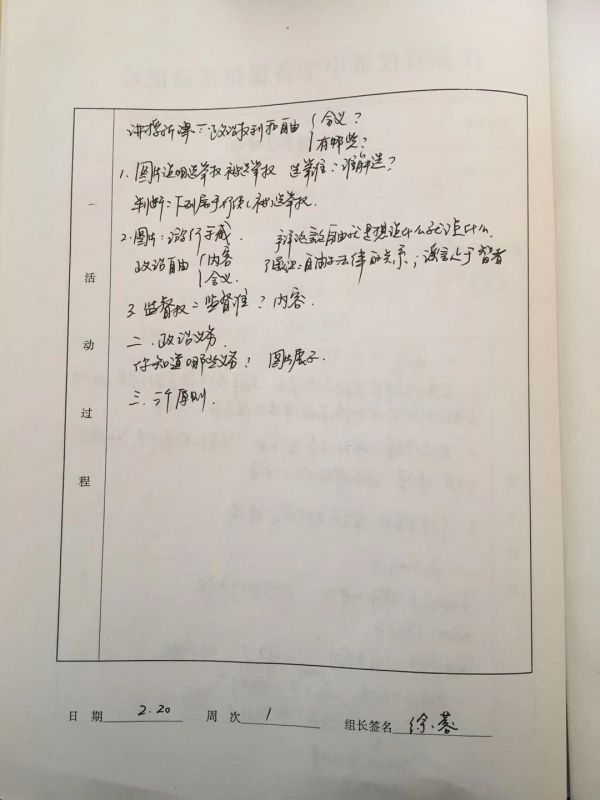 讲授新课：一、政治权利和自由 { 含义？
有哪些？
1. 图片说明选举权 被选举权 选举谁？谁能选？
判断：下列属于行使被选举权.
2. 图片：游行示威. 辩论：言论自由就是想说什么就说什么.
政治自由 { 内容 强调：自由与法律的关系；谣言止于智者
含义.
3. 监督权：监督谁？内容.
二. 政治义务.
你知道哪些义务？ 图片展示.
三. 三个原则.
活动过程
日 期 2.20 周 次 1 组长签名 徐蓉